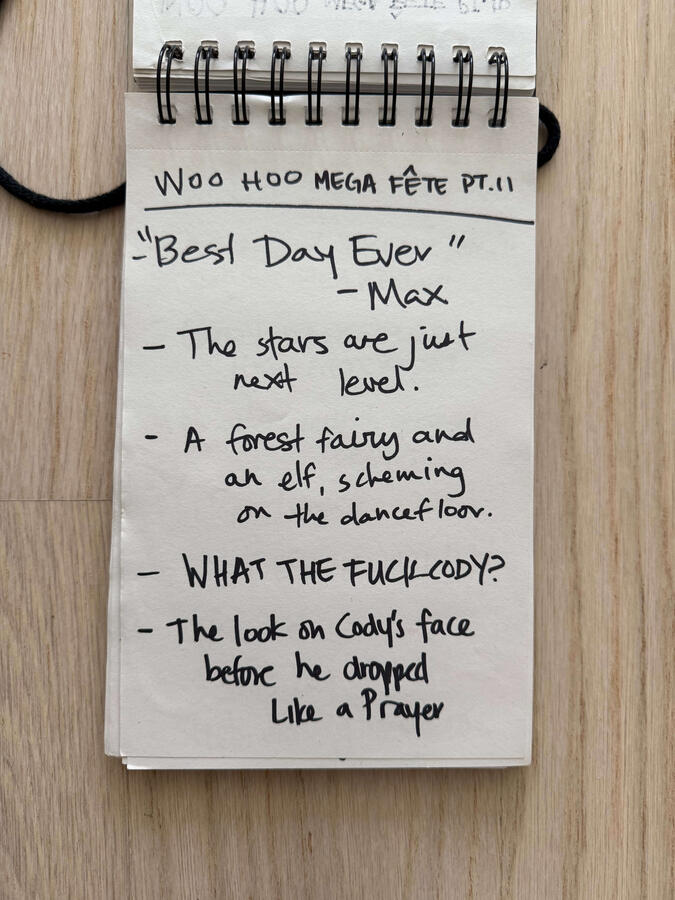 WOO HOO MEGA FÊTE PT.II
- "Best Day Ever"
- Max
- The stars are just
next level.
- A forest fairy and
an elf, scheming
on the dancefloor.
- WHAT THE FUCK CODY?
- The look on Cody's face
before he dropped
Like a Prayer